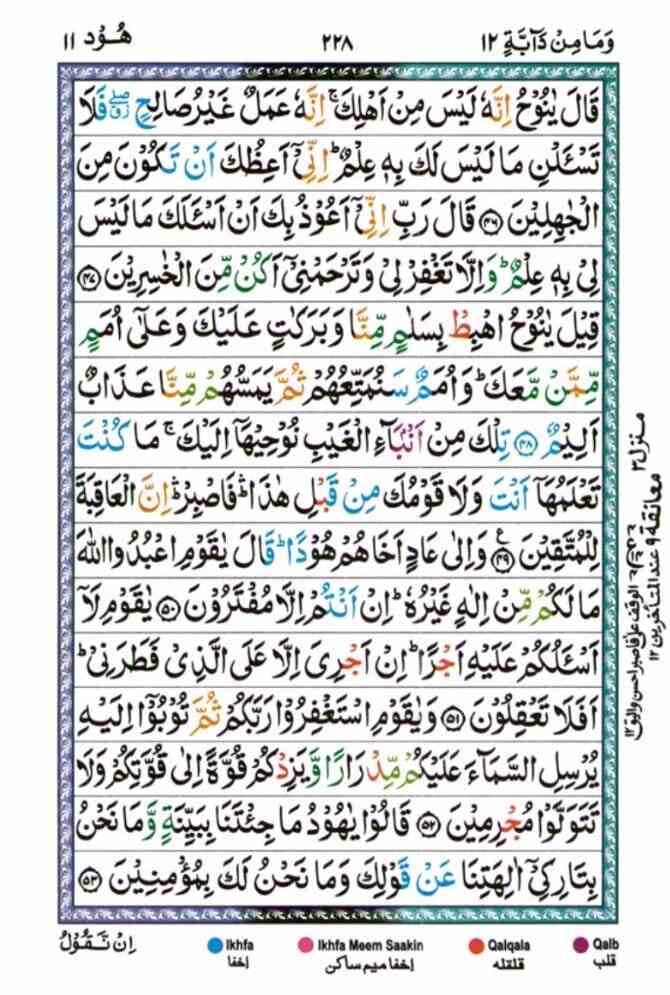 وَمَا مِنْ دَآبَّةٍ ١٢
٢٢٨
هُوْد ١١
قَالَ يٰنُوْحُ اِنَّهٗ لَيْسَ مِنْ اَهْلِكَ ۚ اِنَّهٗ عَمَلٌ غَيْرُ صَالِحٍ ۖ فَلَا
تَسْـَٔلْنِ مَا لَيْسَ لَكَ بِهٖ عِلْمٌ ؕ اِنِّيْۤ اَعِظُكَ اَنْ تَكُوْنَ مِنَ
الْجٰهِلِيْنَ ﴿۴۶﴾ قَالَ رَبِّ اِنِّيْۤ اَعُوْذُ بِكَ اَنْ اَسْـَٔلَكَ مَا لَيْسَ
لِيْ بِهٖ عِلْمٌ ؕ وَاِلَّا تَغْفِرْ لِيْ وَتَرْحَمْنِيْۤ اَكُنْ مِّنَ الْخٰسِرِيْنَ ﴿۴۷﴾
قِيْلَ يٰنُوْحُ اهْبِطْ بِسَلٰمٍ مِّنَّا وَبَرَكٰتٍ عَلَيْكَ وَعَلٰۤى اُمَمٍ
مِّمَّنْ مَّعَكَ ؕ وَاُمَمٌ سَنُمَتِّعُهُمْ ثُمَّ يَمَسُّهُمْ مِّنَّا عَذَابٌ
اَلِيْمٌ ﴿۴۸﴾ تِلْكَ مِنْ اَنْۢبَآءِ الْغَيْبِ نُوْحِيْهَاۤ اِلَيْكَ ۚ مَا كُنْتَ
تَعْلَمُهَاۤ اَنْتَ وَلَا قَوْمُكَ مِنْ قَبْلِ هٰذَا ۛؕ فَاصْبِرْ ۛؕ اِنَّ الْعَاقِبَةَ
لِلْمُتَّقِيْنَ ﴿۴۹﴾ وَاِلٰى عَادٍ اَخَاهُمْ هُوْدًا ؕ قَالَ يٰقَوْمِ اعْبُدُوا اللّٰهَ
مَا لَكُمْ مِّنْ اِلٰهٍ غَيْرُهٗ ؕ اِنْ اَنْتُمْ اِلَّا مُفْتَرُوْنَ ﴿۵۰﴾ يٰقَوْمِ لَاۤ
اَسْـَٔلُكُمْ عَلَيْهِ اَجْرًا ؕ اِنْ اَجْرِيَ اِلَّا عَلَى الَّذِيْ فَطَرَنِيْ ؕ
اَفَلَا تَعْقِلُوْنَ ﴿۵۱﴾ وَيٰقَوْمِ اسْتَغْفِرُوْا رَبَّكُمْ ثُمَّ تُوْبُوْۤا اِلَيْهِ
يُرْسِلِ السَّمَآءَ عَلَيْكُمْ مِّدْرَارًا وَّيَزِدْكُمْ قُوَّةً اِلٰى قُوَّتِكُمْ وَلَا
تَتَوَلَّوْا مُجْرِمِيْنَ ﴿۵۲﴾ قَالُوْا يٰهُوْدُ مَا جِئْتَنَا بِبَيِّنَةٍ وَّمَا نَحْنُ
بِتَارِكِيْۤ اٰلِهَتِنَا عَنْ قَوْلِكَ وَمَا نَحْنُ لَكَ بِمُؤْمِنِيْنَ ﴿۵۳﴾
منزل ٣
معانقة ٩ عند المتأخرين ١٢
الوقف على فاصبر احسن واليق ١٢
اِنْ نَّقُوْلُ
Ikhfa
اخفا
Ikhfa Meem Saakin
اخفا میم ساکن
Qalqala
قلقله
Qalb
قلب